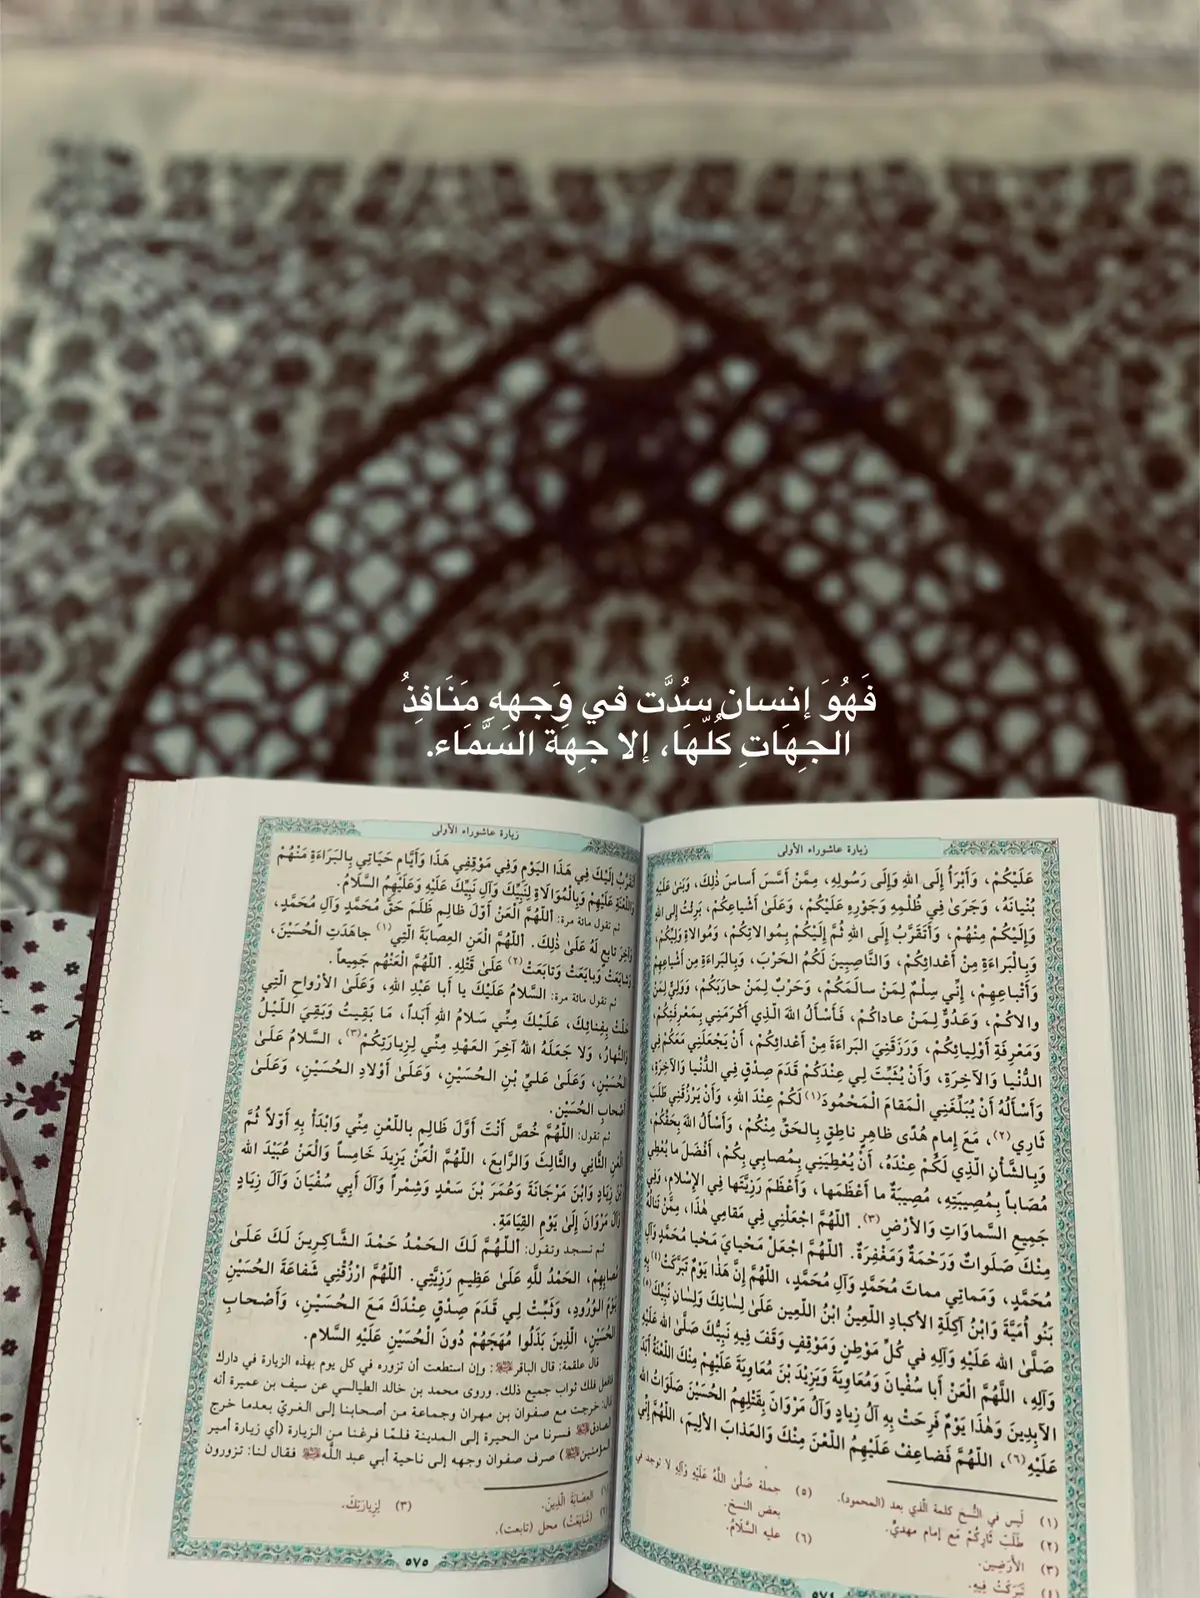 فَهُوَ إنسان سُدَّت في وَجههِ مَنَافِذُ
الجِهَاتِ كُلّهَا، إلا جِهَة السَّمَاء.
زيارة عاشوراء الأولى
عَلَيْكُمْ، وَأَبْرَأُ إِلَى اللهِ وَإِلَى رَسُولِهِ، مِمَّنْ أَسَّسَ أَساسَ ذٰلِكَ، وَبَنىٰ عَلَيْهِ
بُنْيانَهُ، وَجَرَىٰ فِي ظُلْمِهِ وَجَوْرِهِ عَلَيْكُمْ، وَعَلىٰ أَشْياعِكُمْ، بَرِئْتُ إِلى اللهِ
وَإِلَيْكُمْ مِنْهُمْ، وَأَتَقَرَّبُ إِلَى اللهِ ثُمَّ إِلَيْكُمْ بِمُوالاتِكُمْ، وَمُوالاةِ وَلِيِّكُمْ،
وَبِالْبَراءَةِ مِنْ أَعْدائِكُمْ، وَالنَّاصِبِينَ لَكُمُ الحَرْبَ، وَبِالبَراءَةِ مِنْ أَشْياعِهِمْ
وَأَتْباعِهِمْ، إِنِّي سِلْمٌ لِمَنْ سالَمَكُمْ، وَحَرْبٌ لِمَنْ حارَبَكُمْ، وَوَلِيٌّ لِمَنْ
والاكُمْ، وَعَدُوٌّ لِمَنْ عاداكُمْ، فَأَسْأَلُ اللهَ الَّذِي أَكْرَمَنِي بِمَعْرِفَتِكُمْ،
وَمَعْرِفَةِ أَوْلِيائِكُمْ، وَرَزَقَنِيَ البَراءَةَ مِنْ أَعْدائِكُمْ، أَنْ يَجْعَلَنِي مَعَكُمْ فِي
الدُّنْيا وَالآخِرَةِ، وَأَنْ يُثَبِّتَ لِي عِنْدَكُمْ قَدَمَ صِدْقٍ فِي الدُّنْيا وَالآخِرَةِ،
وَأَسْأَلُهُ أَنْ يُبَلِّغَنِي المَقامَ الْمَحْمُودَ(١) لَكُمْ عِنْدَ اللهِ، وَأَنْ يَرْزُقَنِي طَلَبَ
ثَارِي(٢)، مَعَ إِمامِ هُدًى ظاهِرٍ ناطِقٍ بِالحَقِّ مِنْكُمْ، وَأَسْأَلُ اللهَ بِحَقِّكُمْ،
وَبِالشَّأْنِ الَّذِي لَكُمْ عِنْدَهُ، أَنْ يُعْطِيَنِي بِمُصابِي بِكُمْ، أَفْضَلَ ما يُعْطِي
مُصَاباً بِمُصِيبَتِهِ، مُصِيبَةً ما أَعْظَمَها، وَأَعْظَمَ رَزِيَّتَها فِي الإِسْلامِ، وَفِي
جَمِيعِ السَّماواتِ وَالأرْضِ(٣). اَللّٰهُمَّ اجْعَلْنِي فِي مَقامِي هٰذا، مِمَّنْ تَنالُهُ
مِنْكَ صَلَواتٌ وَرَحْمَةٌ وَمَغْفِرَةٌ. اَللّٰهُمَّ اجْعَلْ مَحْيايَ مَحْيا مُحَمَّدٍ وَآلِ
مُحَمَّدٍ، وَمَماتِي مماتَ مُحَمَّدٍ وَآلِ مُحَمَّدٍ، اللّٰهُمَّ إِنَّ هٰذا يَوْمٌ تَبَرَّكَتْ(٤) بِهِ
بَنُو أُمَيَّةَ وَابْنُ آكِلَةِ الأكبادِ اللَّعِينُ ابْنُ اللَّعِينِ عَلىٰ لِسانِكَ وَلِسانِ نَبِيِّكَ
صَلَّىٰ الله عَلَيْهِ وَآلِهِ في كُلِّ مَوْطِنٍ وَمَوْقِفٍ وَقَفَ فِيهِ نَبِيُّكَ صَلَّىٰ الله عَلَيْهِ
وَآلِهِ، اللّٰهُمَّ الْعَنْ أَبا سُفْيانَ وَمُعاوِيَةَ وَيَزِيْدَ بْنَ مُعاوِيَةَ عَلَيْهِمْ مِنْكَ اللَّعْنَةُ أَبَدَ
الآبِدِينَ وَهٰذا يَوْمٌ فَرِحَتْ بِهِ آلُ زِيادٍ وَآلُ مَرْوَانَ بِقَتْلِهِمُ الحُسَيْنَ صَلَوَاتُ الله
عَلَيْهِ(٦)، اللّٰهُمَّ فَضاعِفْ عَلَيْهِمُ اللَّعْنَ مِنْكَ وَالعَذابَ الأليمَ، اللّٰهُمَّ إِنِّي
(١) لَيس في النُّسخ كلمة الَّذي بعد (المحمود).
(٢) طَلَبَ ثَارِكُمْ مَع إمام مهديٍّ.
(٣) الأرَضِين.
(٤) تَبَرَّكَتْ فِيهِ.
(٥) جملة صَلَّىٰ اللهُ عَلَيْهِ وَآلِهِ لا توجد في
بعض النسخ.
(٦) عليه السَّلَامُ.
٥٧٤
زيارة عاشوراء الأولى
أَتَقَرَّبُ إِلَيْكَ فِي هٰذَا اليَوْمِ وَفِي مَوْقِفِي هٰذَا وَأَيَّامِ حَيَاتِي بِالبَرَاءَةِ مِنْهُمْ
وَاللَّعْنَةِ عَلَيْهِمْ وَبِالْمُوَالَاةِ لِنَبِيِّكَ وَآلِ نَبِيِّكَ عَلَيْهِ وَعَلَيْهِمُ السَّلَامُ.
ثم تقول مائة مرة: اَللّٰهُمَّ الْعَنْ أَوَّلَ ظَالِمٍ ظَلَمَ حَقَّ مُحَمَّدٍ وَآلِ مُحَمَّدٍ،
وَآخِرَ تابِعٍ لَهُ عَلَىٰ ذٰلِكَ. اَللّٰهُمَّ الْعَنِ العِصابَةَ الَّتِي(١) جاهَدَتِ الْحُسَيْنَ،
وَشايَعَتْ وَبايَعَتْ وَتابَعَتْ(٢) عَلىٰ قَتْلِهِ. اَللّٰهُمَّ الْعَنْهُم جَمِيعاً.
ثم تقول مائة مرة: السَّلامُ عَلَيْكَ يا أبا عَبْدِ اللهِ، وَعَلىٰ الأَرْواحِ الَّتِي
حَلَّتْ بِفِنائِكَ، عَلَيْكَ مِنِّي سَلامُ اللهِ أَبَداً، مَا بَقِيتُ وَبَقِيَ اللَّيْلُ
وَالنَّهارُ، وَلا جَعَلَهُ اللهُ آخِرَ العَهْدِ مِنِّي لِزِيارَتِكُمْ(٣)، السَّلامُ عَلَىٰ
الحُسَيْنِ، وَعَلىٰ عَلِيِّ بْنِ الحُسَيْنِ، وَعَلَىٰ أَوْلادِ الْحُسَيْنِ، وَعَلَىٰ
أَصْحابِ الحُسَيْنِ.
ثم تقول: اَللّٰهُمَّ خُصَّ أَنْتَ أَوَّلَ ظالِمٍ بِاللَّعْنِ مِنِّي وَابْدَأْ بِهِ أَوَّلاً ثُمَّ
الْعَنِ الثَّانِيَ والثَّالِثَ وَالرَّابِعَ، اللّٰهُمَّ الْعَنْ يَزِيدَ خَامِساً وَالْعَنْ عُبَيْدَ الله
بْنَ زِيَادٍ وَابْنَ مَرْجَانَةَ وَعُمَرَ بْنَ سَعْدٍ وَشِمْراً وَآلَ أَبِي سُفْيَانَ وَآلَ زِيَادٍ
وَآلَ مَرْوَانَ إِلَىٰ يَوْمِ القِيَامَةِ.
ثم تسجد وتقول: اَللّٰهُمَّ لَكَ الحَمْدُ حَمْدَ الشَّاكِرِينَ لَكَ عَلَىٰ
مُصابِهِمْ، الحَمْدُ للهِ عَلَىٰ عَظِيمِ رَزِيَّتِي. اَللّٰهُمَّ ارْزُقْنِي شَفاعَةَ الحُسَيْنِ
يَوْمَ الوُرُودِ، وَثَبِّتْ لِي قَدَمَ صِدْقٍ عِنْدَكَ مَعَ الحُسَيْنِ، وَأَصْحابِ
الحُسَيْنِ، الَّذِينَ بَذَلُوا مُهَجَهُمْ دُونَ الْحُسَيْنِ عَلَيْهِ السَّلام.
قال علقمة: قال الباقر: وإن استطعت أن تزوره في كل يوم بهذه الزيارة في دارك
فافعل فلك ثواب جميع ذلك. وروى محمد بن خالد الطيالسي عن سيف بن عميرة أنه
قال: خرجت مع صفوان بن مهران وجماعة من أصحابنا إلى الغريّ بعدما خرج
الصادق فسرنا من الحيرة إلى المدينة فلمّا فرغنا من الزيارة (أي زيارة أمير
المؤمنين) صرف صفوان وجهه إلى ناحية أبي عبد الله فقال لنا: تزورون
(١) العِصَابَةَ الَّذِينَ.
(٢) (شَايَعَتْ) محل (تابعت).
(٣) لِزِيارَتِكَ.
٥٧٥